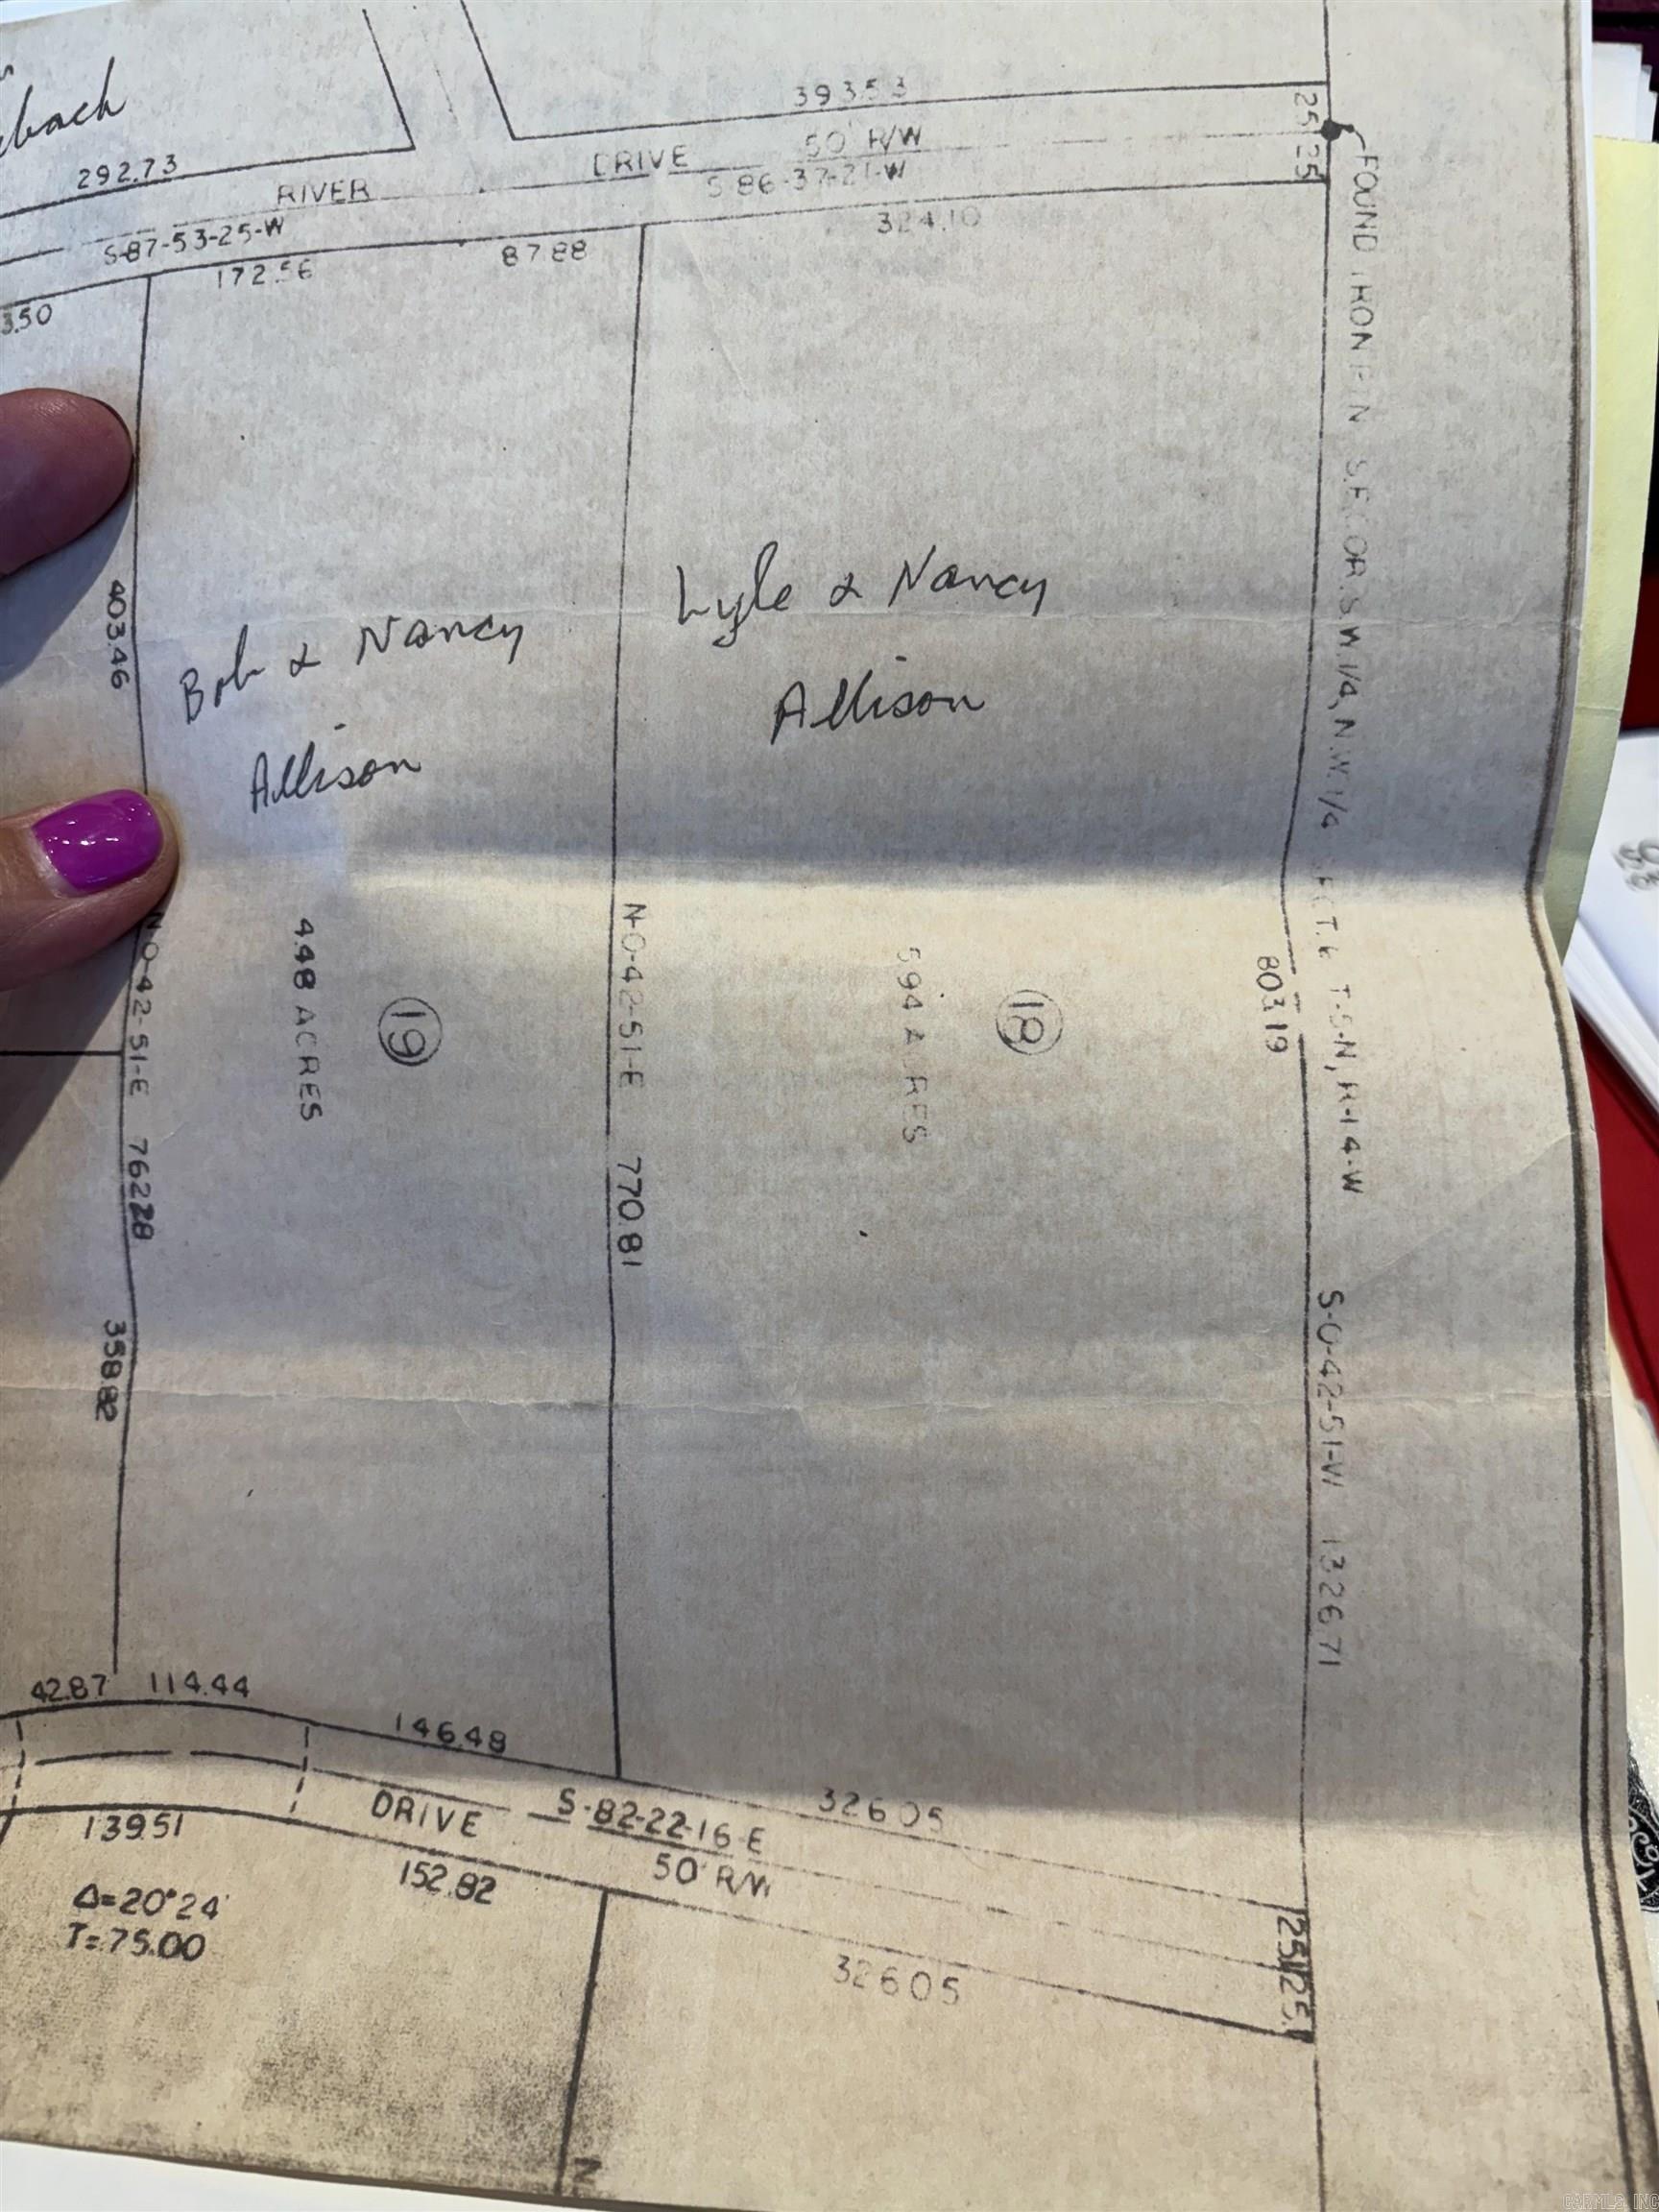 bach
393.53
25
25
292.73
RIVER
DRIVE
50' R/W
S-86-37-21-W
S-87-53-25-W
324.10
172.56
87.88
3.50
FOUND IRON PIN S.E. COR. S.W.1/4, N.W.1/4 SECT. 6 T-5-N, R-14-W
Lyle & Nancy
Allison
Bob & Nancy
Allison
403.46
N-0-42-51-E 762.28
4.48 ACRES
19
N-0-42-51-E 770.81
5.94 ACRES
18
803.19
S-0-42-51-W 1326.71
358.82
42.87
114.44
146.48
326.05
DRIVE
S-82-22-16-E
50' R/W
139.51
152.82
326.05
25
25
Δ=20°24'
T=75.00
N
CARMLS, INC